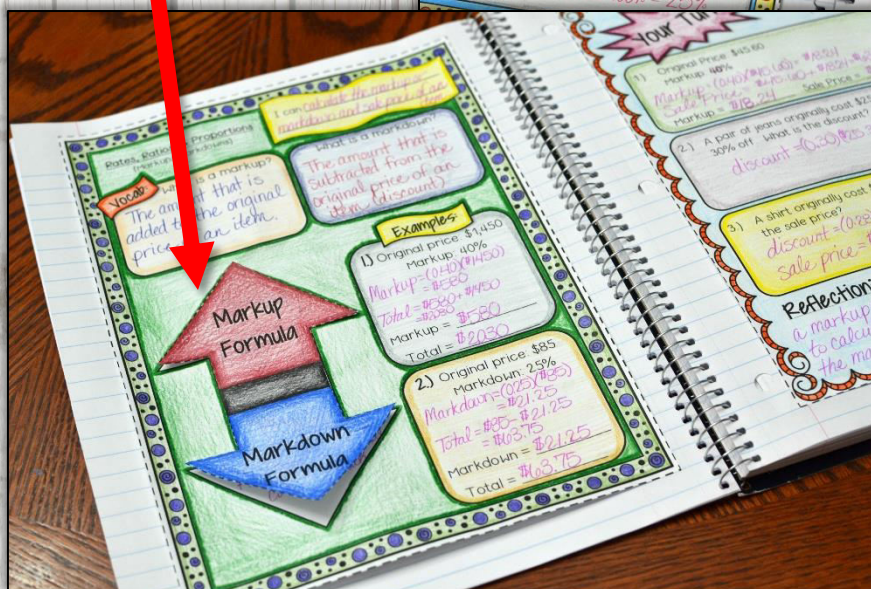 Rates, Ratios, & Proportions
(Markups & Markdowns)
I can calculate the markup or
markdown and sale price of an
item
Vocab:
What is a markup?
The amount that is
added to the original
price an item.
What is a markdown?
The amount that is
subtracted from the
original price of an
item (discount).
Markup
Formula
Markdown
Formula
Examples:
1.) Original price: $1,450
Markup: 40%
Markup=(0.40)($1450)
=$580
Total=$580+$1450
=$2030
Markup = $580
Total = $2030
2.) Original price: $85
Markdown: 25%
Markdown=(0.25)($85)
=$21.25
Total=$85-$21.25
=$63.75
Markdown = $21.25
Total = $63.75
Your Tur
1.) Original Price: $45.60
Markup: 40%
Sale Price =
Markup = $18.24
Sale Price =
2.) A pair of jeans originally cost $25
30% off. What is the discount?
discount=(0.30)($25
3.) A shirt originally cost $
the sale price?
discount=(0.25
sale price=$
Reflection:
a markup
to calcu
the ma
25%